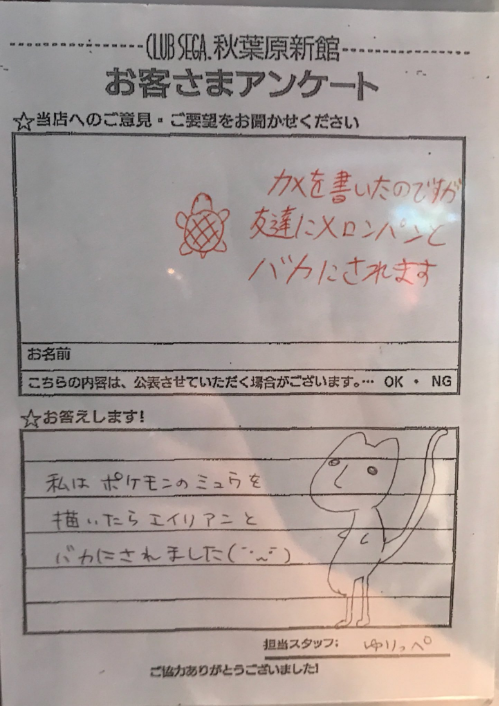 CLUB SEGA. 秋葉原新館
お客さまアンケート
☆当店へのご意見・ご要望をお聞かせください
カメを書いたのですが
友達にメロンパンと
バカにされます
お名前
こちらの内容は、公表させていただく場合がございます。… OK ・ NG
☆お答えします!
私はポケモンのミュウを
描いたらエイリアンと
バカにされました(¨;)
担当スタッフ: ゆりっぺ
ご協力ありがとうございました!